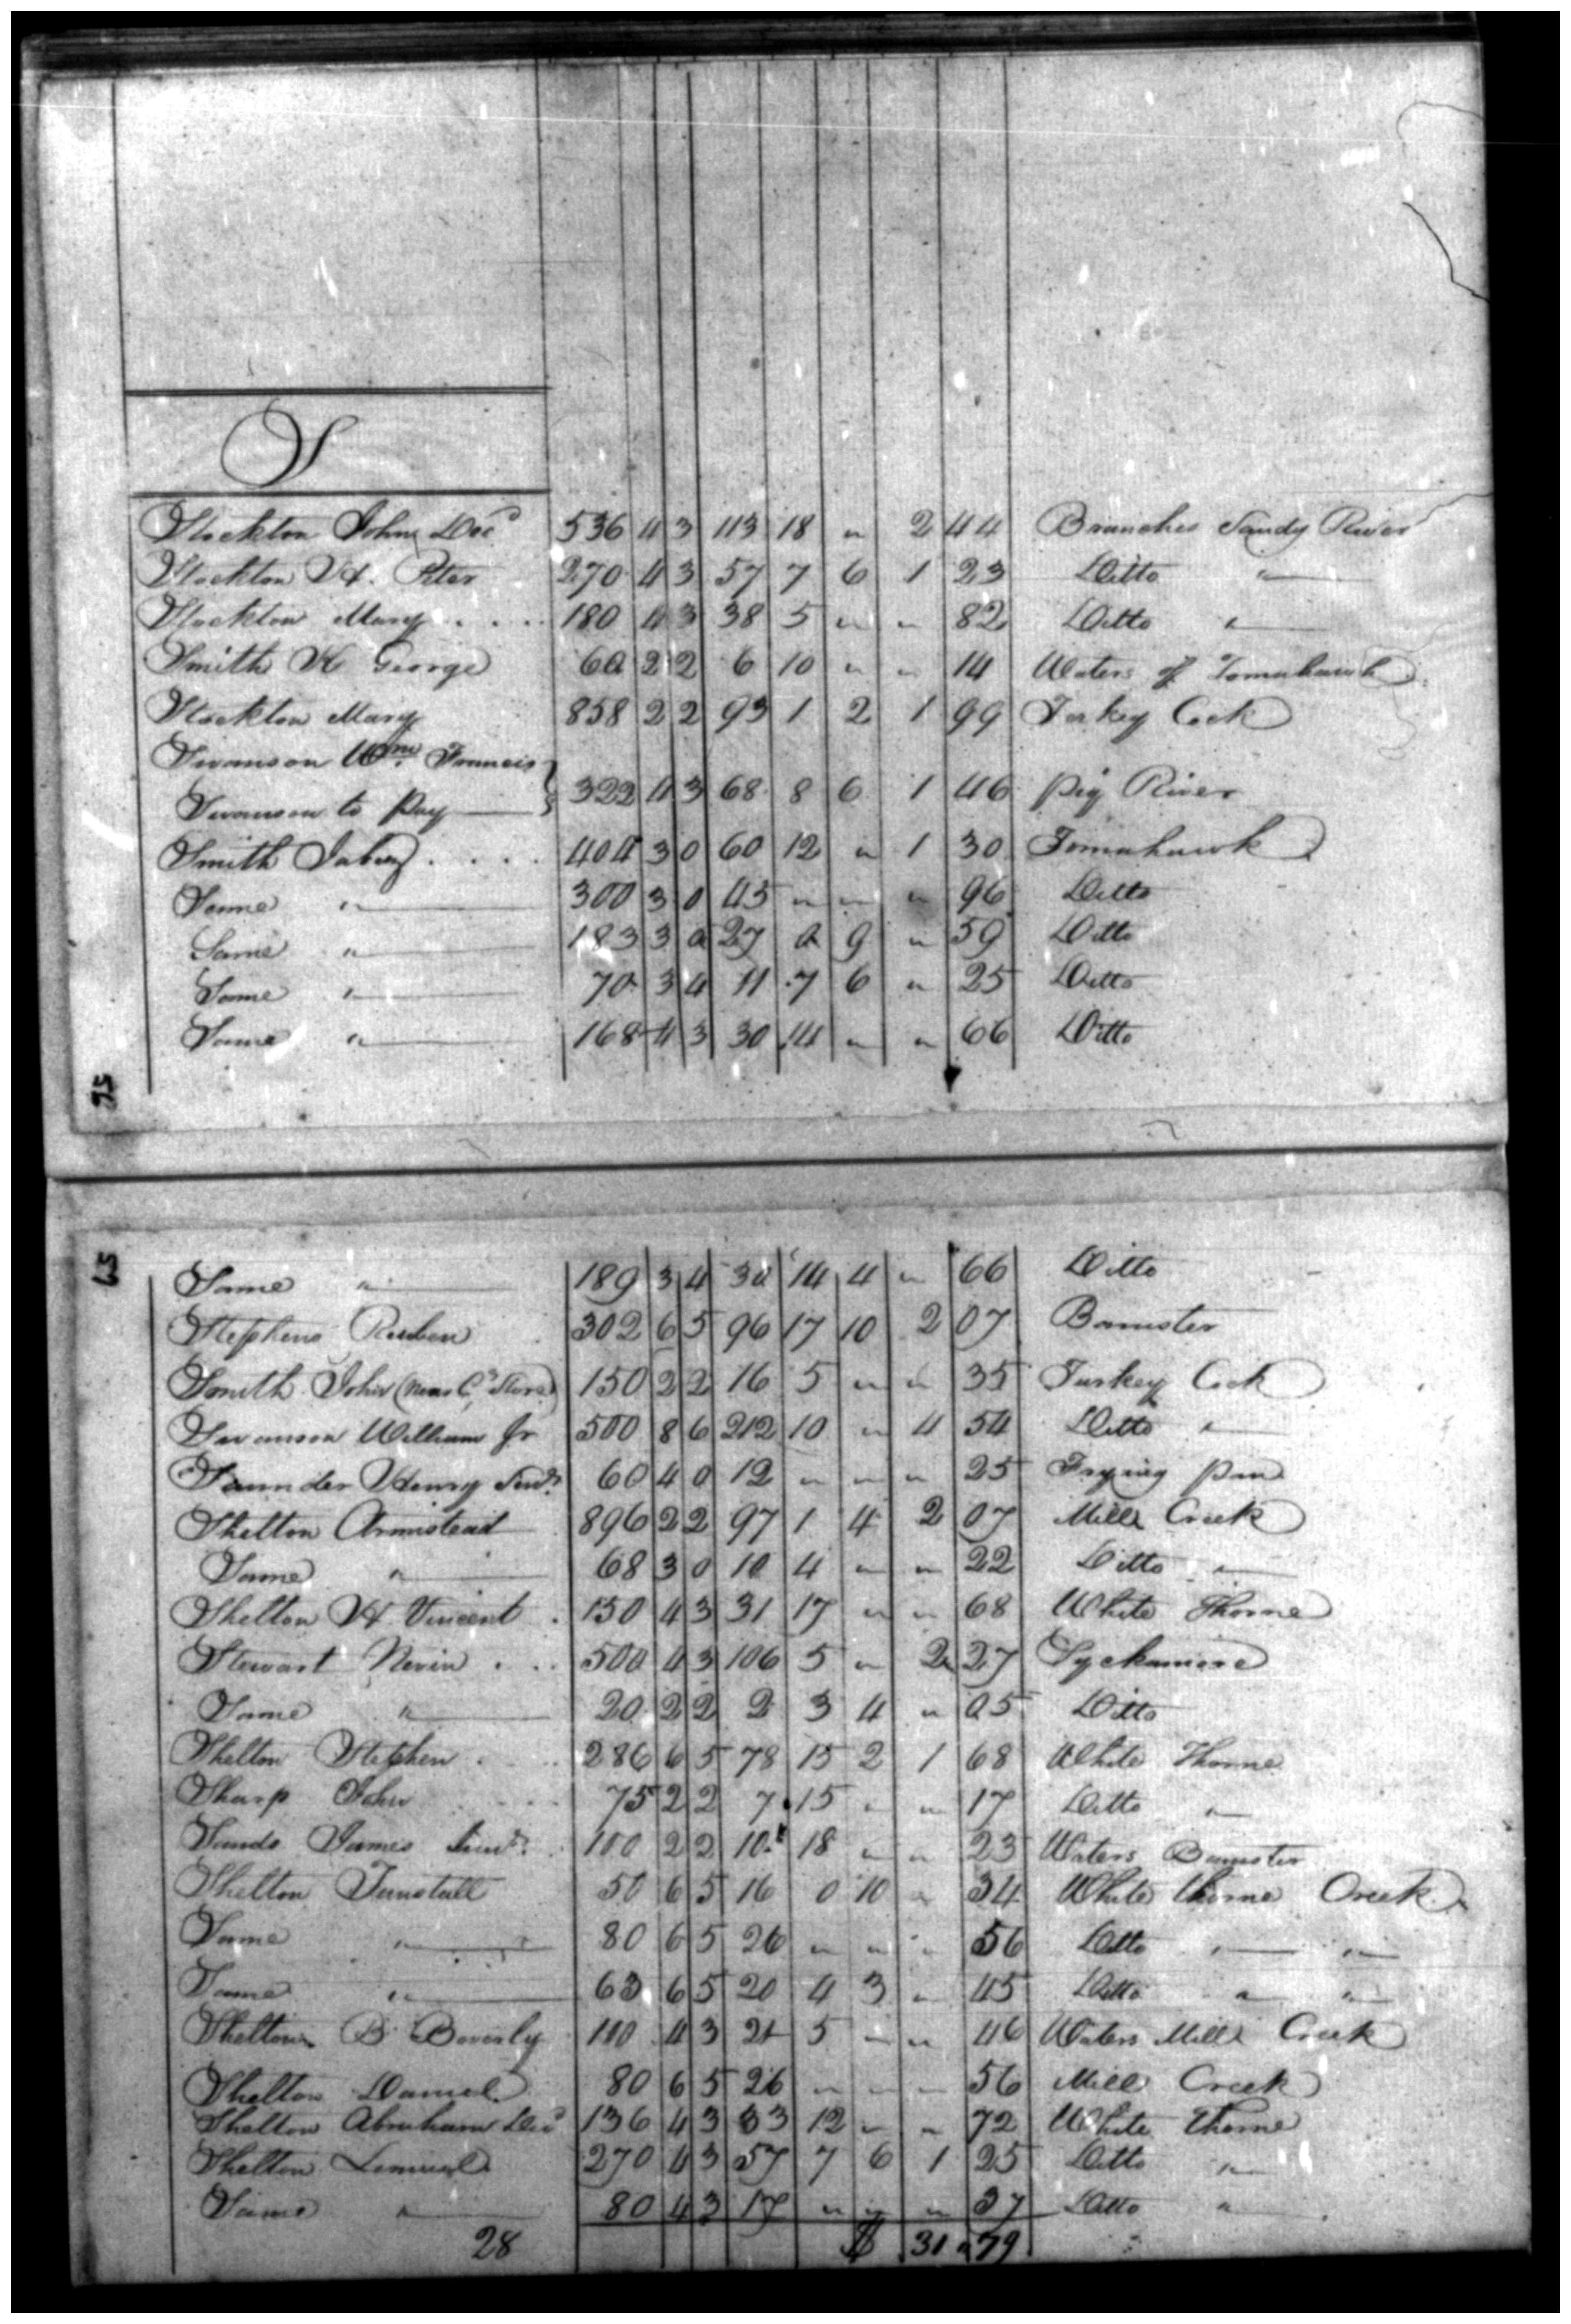 S
Stockton John Decd 536 4 3 113 18 " 2 44 Branches Sandy River
Stockton H. Peter 270 4 3 57 7 6 1 23 Ditto "
Stockton Mary . . . . 180 4 3 38 5 " " 82 Ditto "
Smith H George 60 2 2 6 10 " " 14 Waters of Tomahawk
Stockton Mary 858 2 2 93 1 2 1 99 Turkey Cock
Swanson Wm. Francis
Swanson to Pay 322 4 3 68 8 6 1 46 Pig River
Smith Jabez . . . . 404 3 0 60 12 " 1 30 Tomahawk
Same " 300 3 0 45 " " " 96 Ditto
Same " 183 3 0 27 0 9 " 59 Ditto
Same " 70 3 4 11 7 6 " 25 Ditto
Same " 168 4 3 30 14 " " 66 Ditto
56
57
Same " 189 3 4 30 14 4 " 66 Ditto
Stephens Reuben 302 6 5 96 17 10 2 07 Banister
Smith John (Near C. Store) 150 2 2 16 5 " " 35 Turkey Cock
Swanson William Jr 500 8 6 212 10 " 4 54 Ditto "
Saunder Henry Senr. 60 4 0 12 " " " 25 Frying pan
Shelton Armistead 896 2 2 97 1 4 2 07 Mill Creek
Same " 68 3 0 10 4 " " 22 Ditto "
Shelton H Vincent . 150 4 3 31 17 " " 68 White Thorne
Stewart Nevin . . . 500 4 3 106 5 " 2 27 Syckamore
Same " 20 2 2 2 3 4 " 05 Ditto
Shelton Stephen . . 286 6 5 78 15 2 1 68 White Thorne
Sharp John 75 2 2 7 15 " " 17 Ditto "
Sands James Senr. 100 2 2 10 18 " " 23 Waters Banister
Shelton Tunstall 50 6 5 16 0 10 " 34 White thorne Creek
Same " 80 6 5 26 " " " 56 Ditto " "
Same " 63 6 5 20 4 3 " 45 Ditto " "
Shelton B Beverly 100 4 3 21 5 " " 46 Waters Mill Creek
Shelton Daniel 80 6 5 26 " " " 56 Mill Creek
Shelton Abraham Decd 136 4 3 33 12 " " 72 White Thorne
Shelton Lemuel 270 4 3 57 7 6 1 25 Ditto "
Same " 80 4 3 17 " " " 37 Ditto "
28 $ 31 . 79